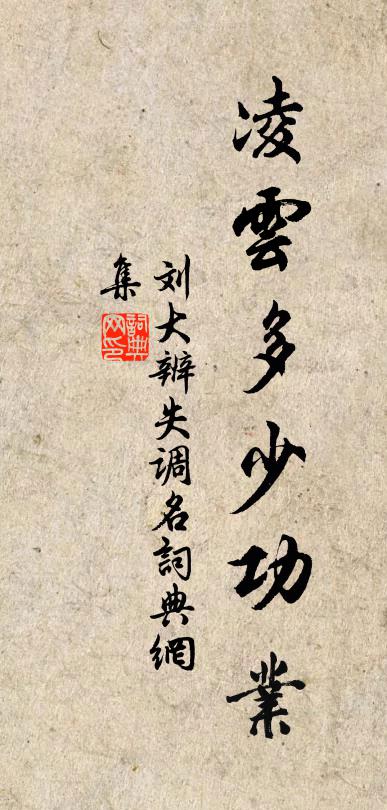 凌雲多少功業
刘大辨失调名詞典網
集
詞典网印